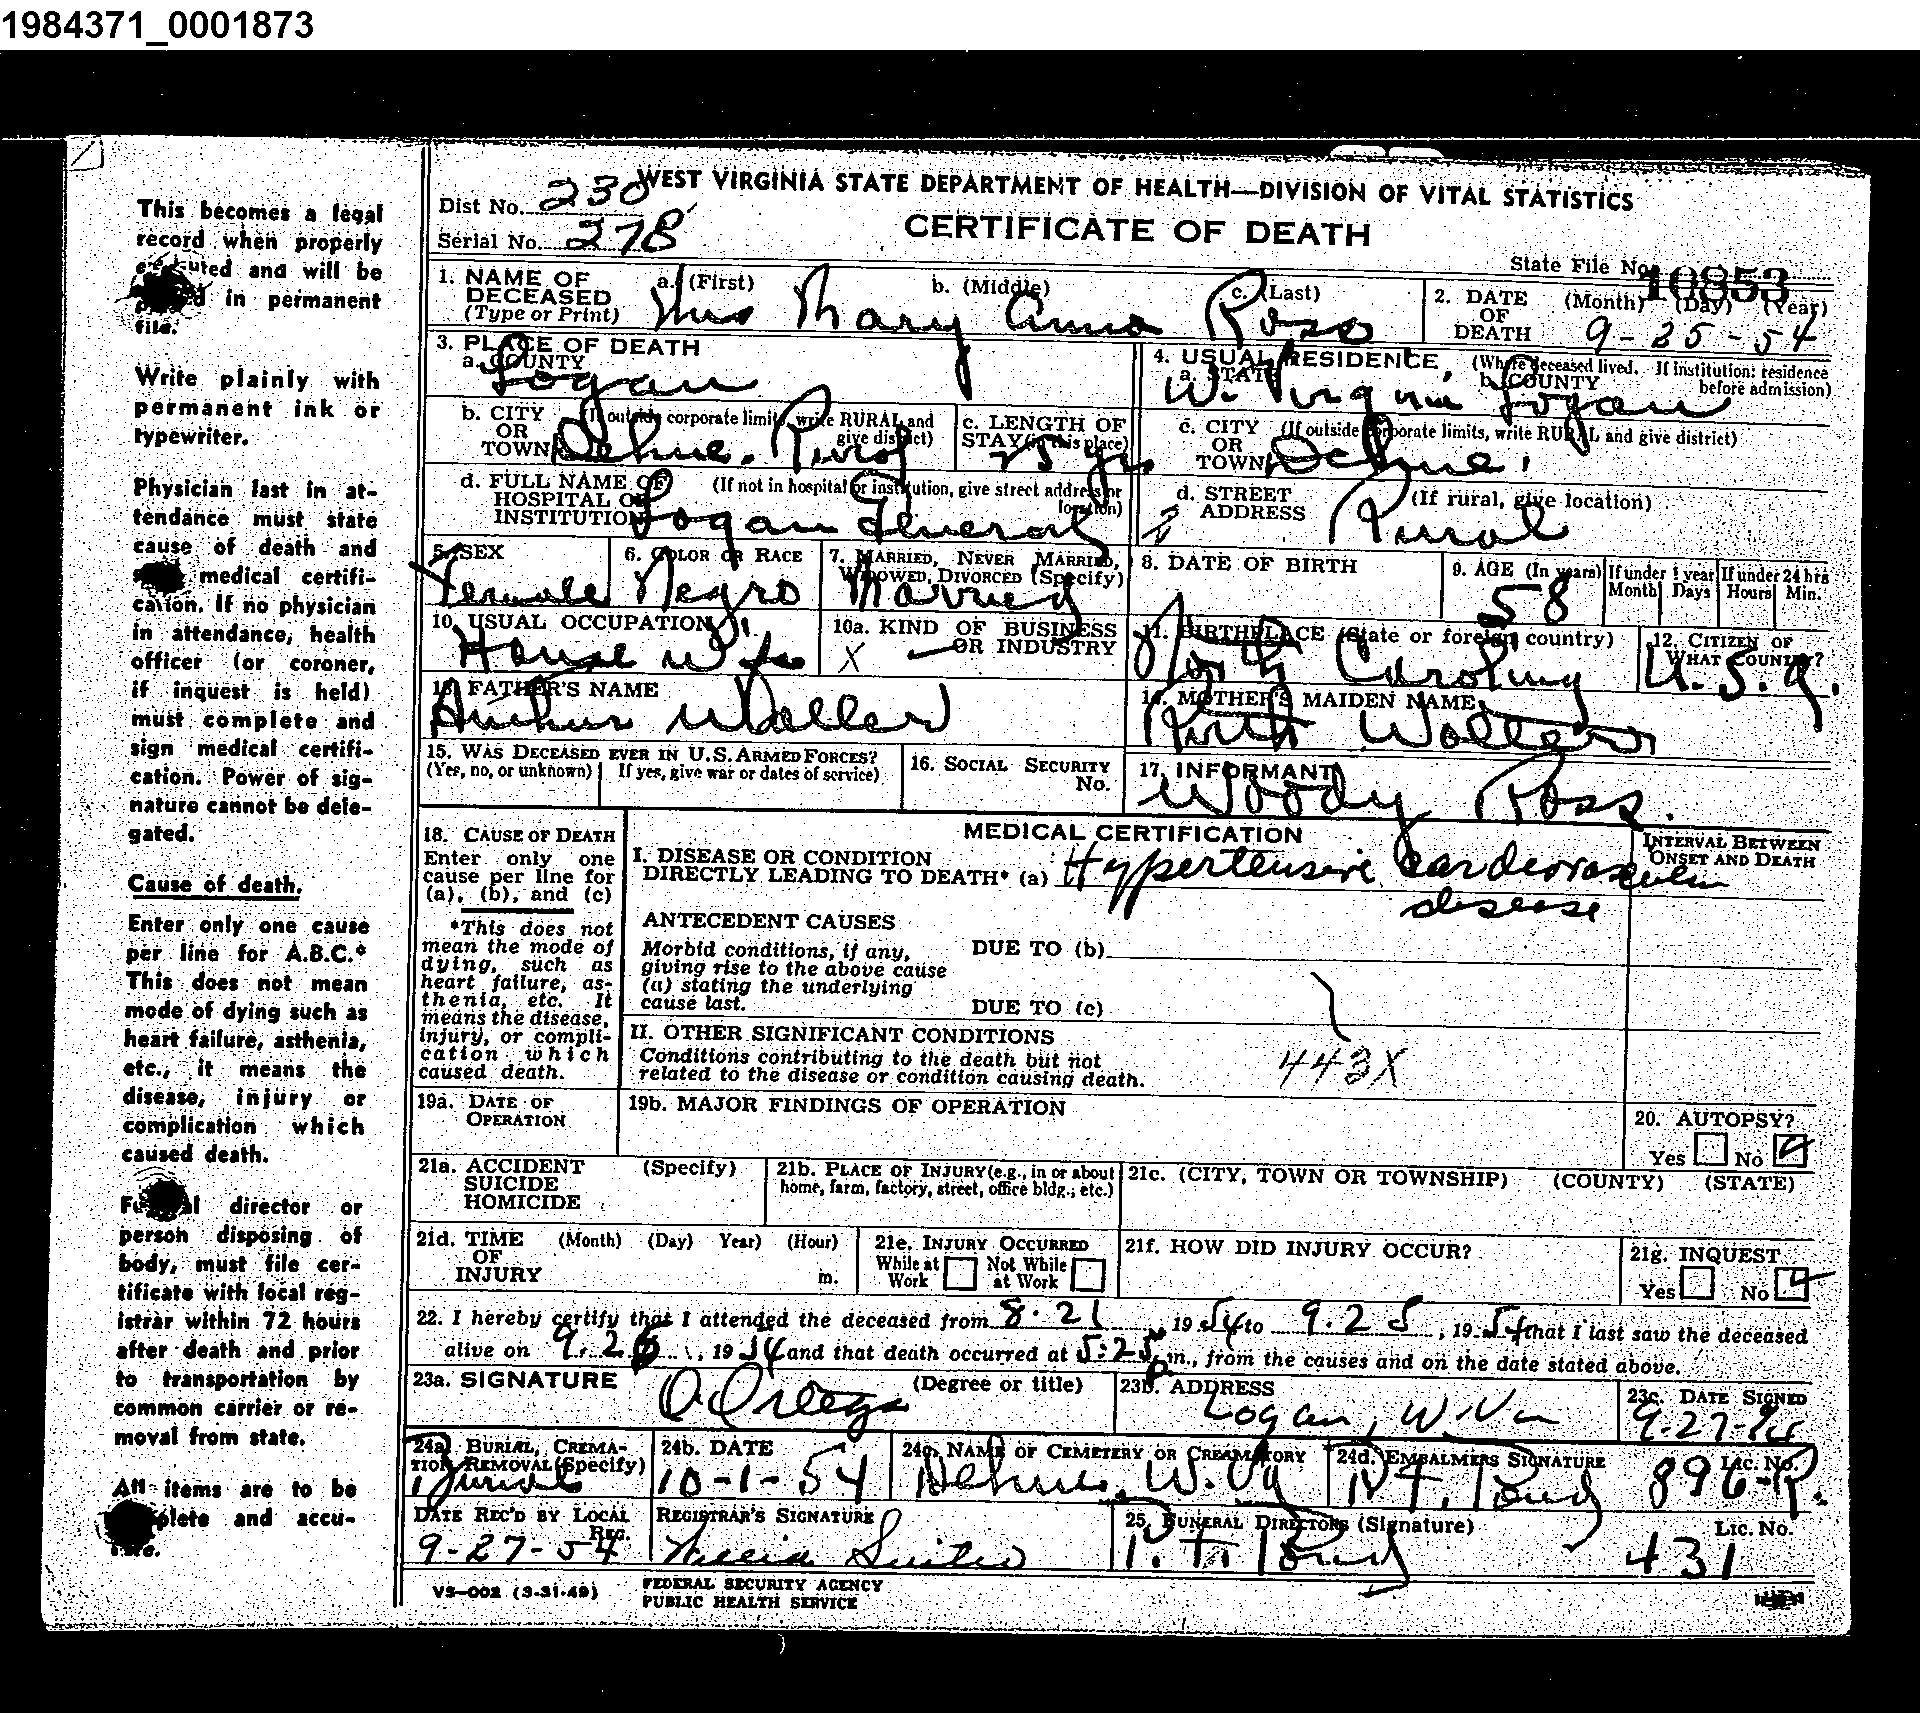 1984371_0001873
This becomes a legal
record when properly
and will be
in permanent
file.
Write plainly with
permanent ink or
typewriter.
Physician last in at-
tendance must state
cause of death and
medical certifi-
cation. If no physician
in attendance, health
officer (or coroner,
if inquest is held)
must complete and
sign medical certifi-
cation. Power of sig-
nature cannot be dele-
gated.
Cause of death.
Enter only one cause
per line for A.B.C.*
This does not mean
mode of dying such as
heart failure, asthenia,
etc., it means the
disease, injury or
complication which
caused death.
director or
person disposing of
body, must file cer-
tificate with local reg-
istrar within 72 hours
after death and prior
to transportation by
common carrier or re-
moval from state.
All items are to be
and accu-
WEST VIRGINIA STATE DEPARTMENT OF HEALTH—DIVISION OF VITAL STATISTICS
Dist No. 230
CERTIFICATE OF DEATH
Serial No. 278
State File No. 10853
1. NAME OF DECEASED (Type or Print) a. (First) b. (Middle) c. (Last)
Mrs Mary Anna Ross
2. DATE OF DEATH (Month) (Day) (Year)
9-25-54
3. PLACE OF DEATH
a. COUNTY Logan
4. USUAL RESIDENCE (Where deceased lived. If institution: residence before admission)
a. STATE W. Virginia b. COUNTY Logan
b. CITY OR TOWN (If outside corporate limits, write RURAL and give district) Dehue. Rural
c. LENGTH OF STAY (in this place) 25 yr
c. CITY OR TOWN (If outside corporate limits, write RURAL and give district) Dehue.
d. FULL NAME OF HOSPITAL OR INSTITUTION (If not in hospital or institution, give street address or location) Logan General
d. STREET ADDRESS (If rural, give location) Rural
5. SEX Female
6. COLOR OR RACE Negro
7. MARRIED, NEVER MARRIED, WIDOWED, DIVORCED (Specify) Married
8. DATE OF BIRTH
9. AGE (In years) 58
If under 1 year Month Days
If under 24 hrs Hours Min.
10. USUAL OCCUPATION House wife
10a. KIND OF BUSINESS OR INDUSTRY X —
11. BIRTHPLACE (State or foreign country) North Carolina
12. CITIZEN OF WHAT COUNTRY? U.S.A.
13. FATHER'S NAME Arthur Waller
14. MOTHER'S MAIDEN NAME Ruth Wallers
15. WAS DECEASED EVER IN U.S. ARMED FORCES?
(Yes, no, or unknown) If yes, give war or dates of service)
16. SOCIAL SECURITY No.
17. INFORMANT Woody Ross.
18. CAUSE OF DEATH
Enter only one
cause per line for
(a), (b), and (c)
*This does not
mean the mode of
dying, such as
heart failure, as-
thenia, etc. It
means the disease,
injury, or compli-
cation which
caused death.
MEDICAL CERTIFICATION
INTERVAL BETWEEN ONSET AND DEATH
I. DISEASE OR CONDITION
DIRECTLY LEADING TO DEATH* (a) Hypertensive Cardiovascular
disease
ANTECEDENT CAUSES
Morbid conditions, if any,
giving rise to the above cause
(a) stating the underlying
cause last.
DUE TO (b)
DUE TO (c)
II. OTHER SIGNIFICANT CONDITIONS
Conditions contributing to the death but not
related to the disease or condition causing death.
443X
19a. DATE OF OPERATION
19b. MAJOR FINDINGS OF OPERATION
20. AUTOPSY?
Yes No
21a. ACCIDENT SUICIDE HOMICIDE (Specify)
21b. PLACE OF INJURY (e.g., in or about home, farm, factory, street, office bldg., etc.)
21c. (CITY, TOWN OR TOWNSHIP) (COUNTY) (STATE)
21d. TIME OF INJURY (Month) (Day) Year) (Hour) m.
21e. INJURY OCCURRED
While at Work Not While at Work
21f. HOW DID INJURY OCCUR?
21g. INQUEST
Yes No
22. I hereby certify that I attended the deceased from 8.21, 19 54 to 9.25, 19 54 that I last saw the deceased
alive on 9.25, 19 54 and that death occurred at 5:25 p m., from the causes and on the date stated above.
23a. SIGNATURE (Degree or title)
23b. ADDRESS Logan, W.Va
23c. DATE SIGNED 9-27-54
24a. BURIAL, CREMATION REMOVAL (Specify) Burial
24b. DATE 10-1-54
24c. NAME OF CEMETERY OR CREAMATORY Dehue. W. Va
24d. EMBALMERS SIGNATURE Lic. No. 896-R.
DATE REC'D BY LOCAL REG. 9-27-54
REGISTRAR'S SIGNATURE
25. FUNERAL DIRECTORS (Signature) Lic. No. 431
VS-002 (3-31-49)
FEDERAL SECURITY AGENCY
PUBLIC HEALTH SERVICE